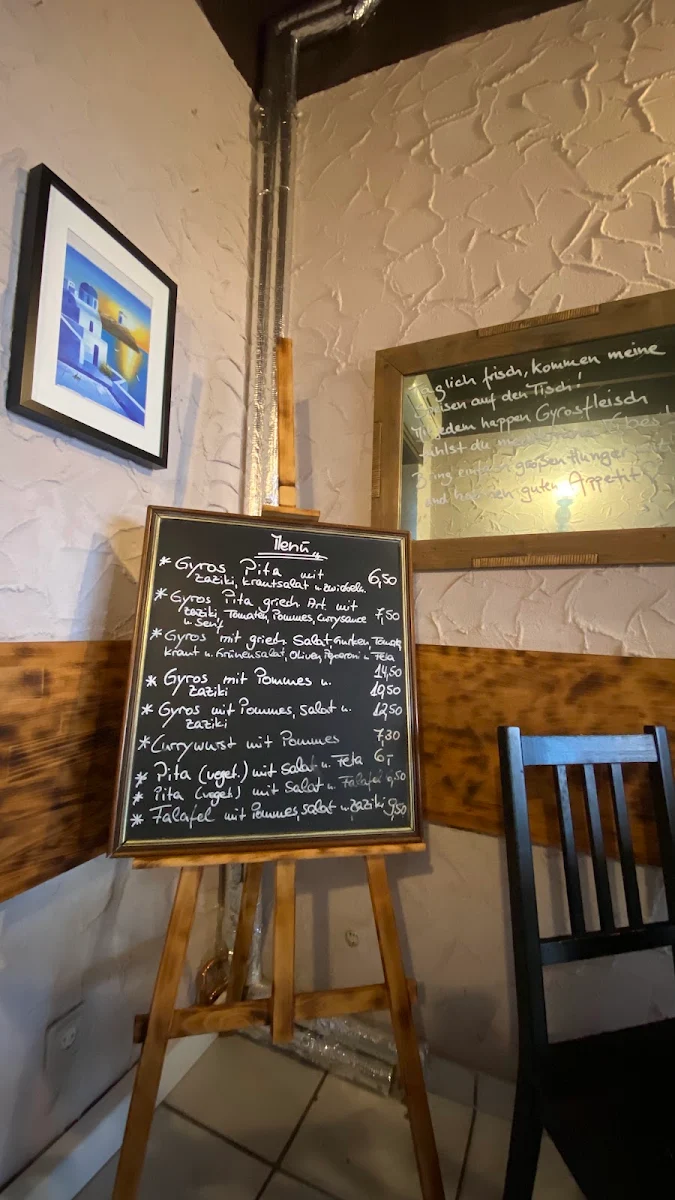 Menü
* Gyros Pita mit
zaziki, krautsalat u. zwiebeln 6,50
* Gyros Pita griech Art mit
zaziki, Tomaten, Pommes, Currysauce 7,50
u. Senf
* Gyros mit griech Salat, Gurken, Tomaten,
kraut u. Grünensalat, Oliven, Peperoni u. Feta
14,50
* Gyros mit Pommes u.
zaziki 10,50
* Gyros mit Pommes, Salat u. 12,50
zaziki
* Currywurst mit Pommes 7,30
* Pita (veget.) mit Salat u. Feta 6,-
* Pita (veget.) mit Salat u. Falafel 6,50
* Falafel mit Pommes, salat u. zaziki 9,50
Täglich frisch, kommen meine
Speisen auf den Tisch!
Mit jedem happen Gyrosfleisch
fühlst du
Bring einfach großen Hunger mit
und hab nen guten Appetit